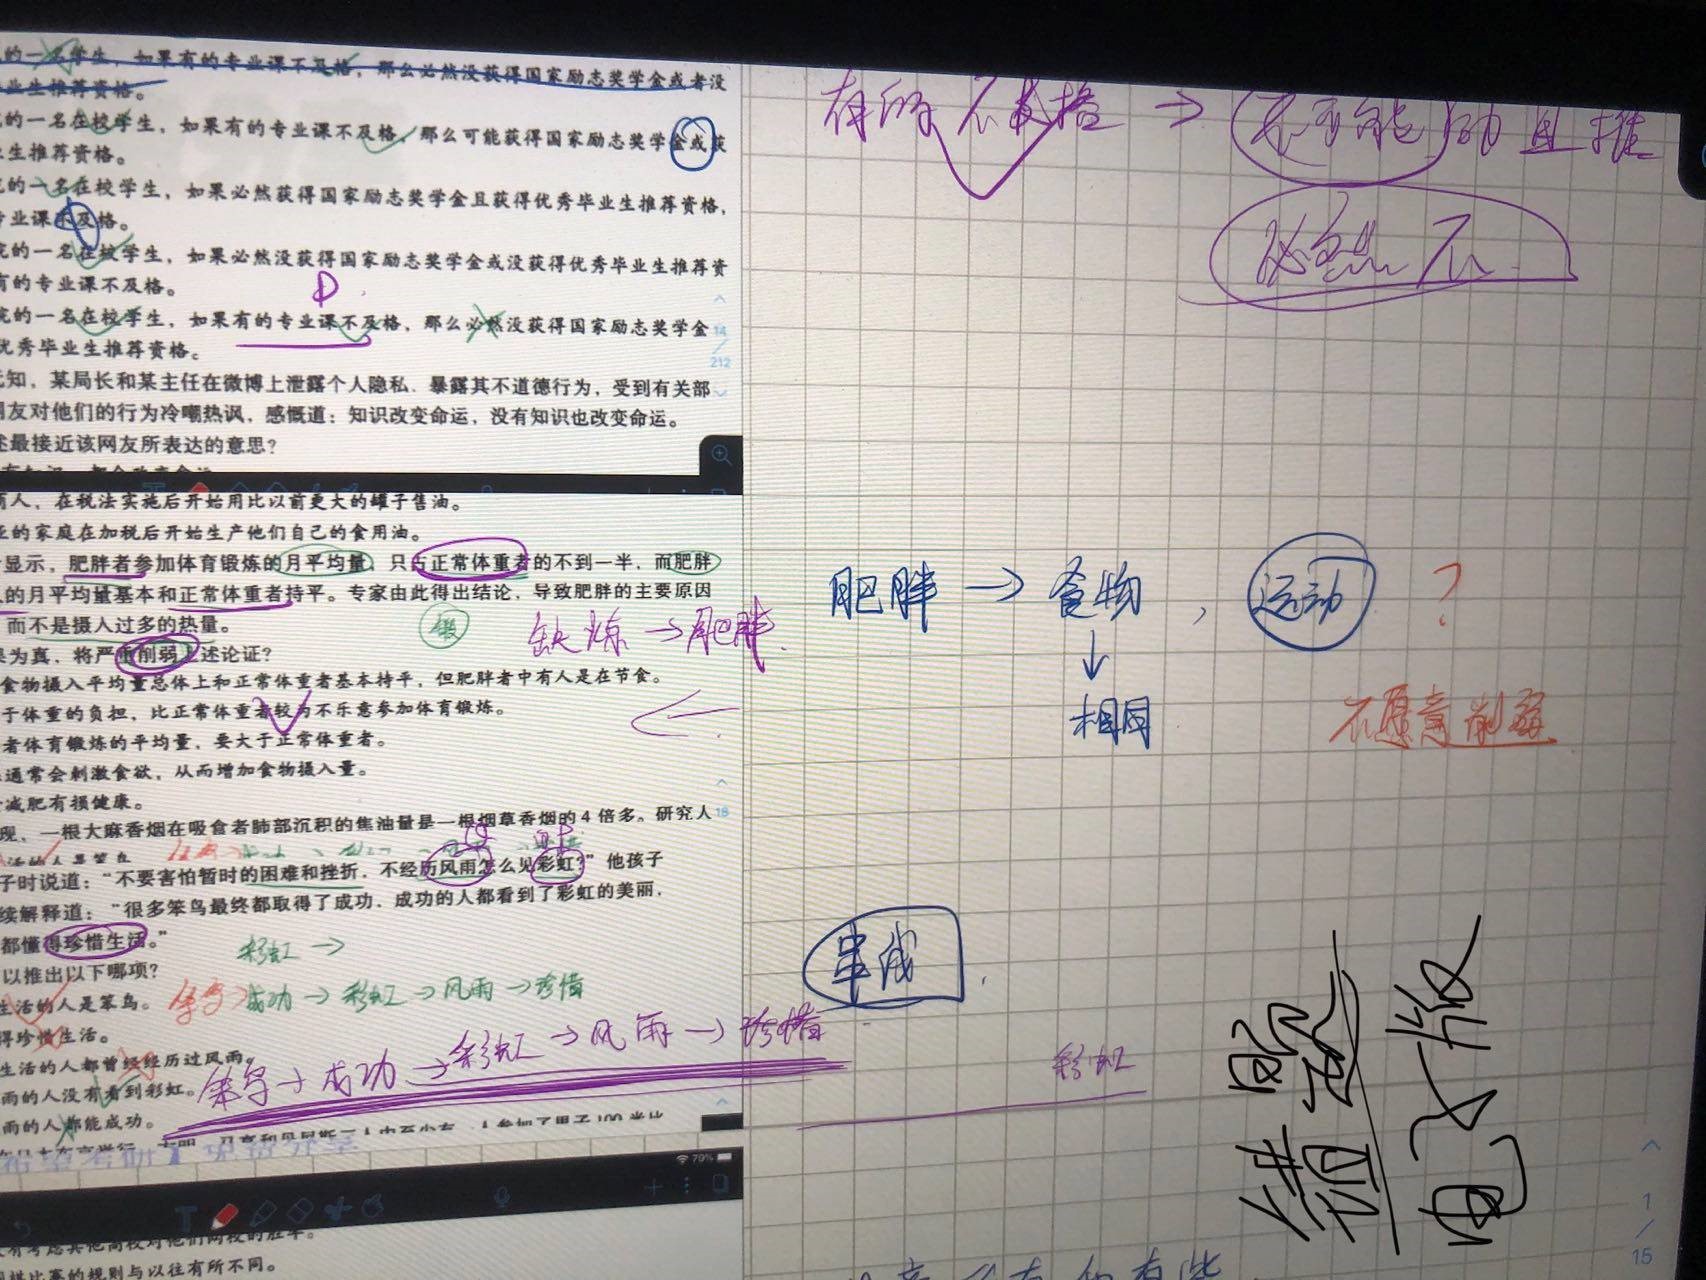 的一名学生，如果有的专业课不及格，那么必然没获得国家励志奖学金或者没
业生推荐资格。
的一名在校学生，如果有的专业课不及格，那么可能获得国家励志奖学金或获
生推荐资格。
的一名在校学生，如果必然获得国家励志奖学金且获得优秀毕业生推荐资格，
专业课不及格。
院的一名在校学生，如果必然没获得国家励志奖学金或没获得优秀毕业生推荐资
有的专业课不及格。
D
院的一名在校学生，如果有的专业课不及格，那么必然没获得国家励志奖学金
优秀毕业生推荐资格。
14
/
212
无知，某局长和某主任在微博上泄露个人隐私、暴露其不道德行为，受到有关部
网友对他们的行为冷嘲热讽，感慨道：知识改变命运，没有知识也改变命运。
述最接近该网友所表达的意思？
有的不及格 → 不可能 励 且 推
必然 不
有人，在税法实施后开始用比以前更大的罐子售油。
的家庭在加税后开始生产他们自己的食用油。
显示，肥胖者参加体育锻炼的月平均量，只占正常体重者的不到一半，而肥胖
的月平均量基本和正常体重者持平。专家由此得出结论，导致肥胖的主要原因
而不是摄入过多的热量。
缺炼 → 肥胖
为真，将严重削弱上述论证？
食物摄入平均量总体上和正常体重者基本持平，但肥胖者中有人是在节食。
于体重的负担，比正常体重者较为不乐意参加体育锻炼。
者体育锻炼的平均量，要大于正常体重者。
通常会刺激食欲，从而增加食物摄入量。
减肥有损健康。
现，一根大麻香烟在吸食者肺部沉积的焦油量是一根烟草香烟的4倍多。研究人
18
肥胖 → 食物，运动 ?
↓
相同
不愿意削弱
子时说道：“不要害怕暂时的困难和挫折，不经历风雨怎么见彩虹？”他孩子
续解释道：“很多笨鸟最终都取得了成功，成功的人都看到了彩虹的美丽，
都懂得珍惜生活。”
彩虹 →
以推出以下哪项？
生活的人是笨鸟。
笨鸟 → 成功 → 彩虹 → 风雨 → 珍惜
得珍惜生活。
生活的人都曾经经历过风雨。
雨的人没有看到彩虹。
雨的人都能成功。
笨鸟 → 成功 → 彩虹 → 风雨 → 珍惜
串线
彩虹
79%
没有考虑其他高校对他们两校的胜率。
棋比赛的规则与以往有所不同。
1
/
15